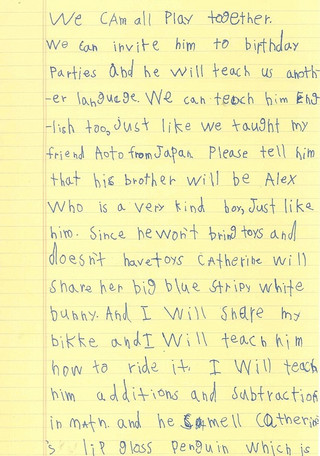 We CAm all Play together.
We can invite him to birthday
Parties and he will teach us anoth-
-er language. We can teach him Eng
-lish too, Just like we taught my
friend Aoto from Japan Please tell him
that his brother will be Alex
who is a very kind boy, Just like
him. Since he won't bring toys and
doesn't have toys Catherine will
share her big blue stripy white
bunny. And I Will Share my
bikke and I Will teach him
how to ride it. I Will teach
him additions and subtraction
in math. and he smell Catherine
's lip gloss Penguin which is